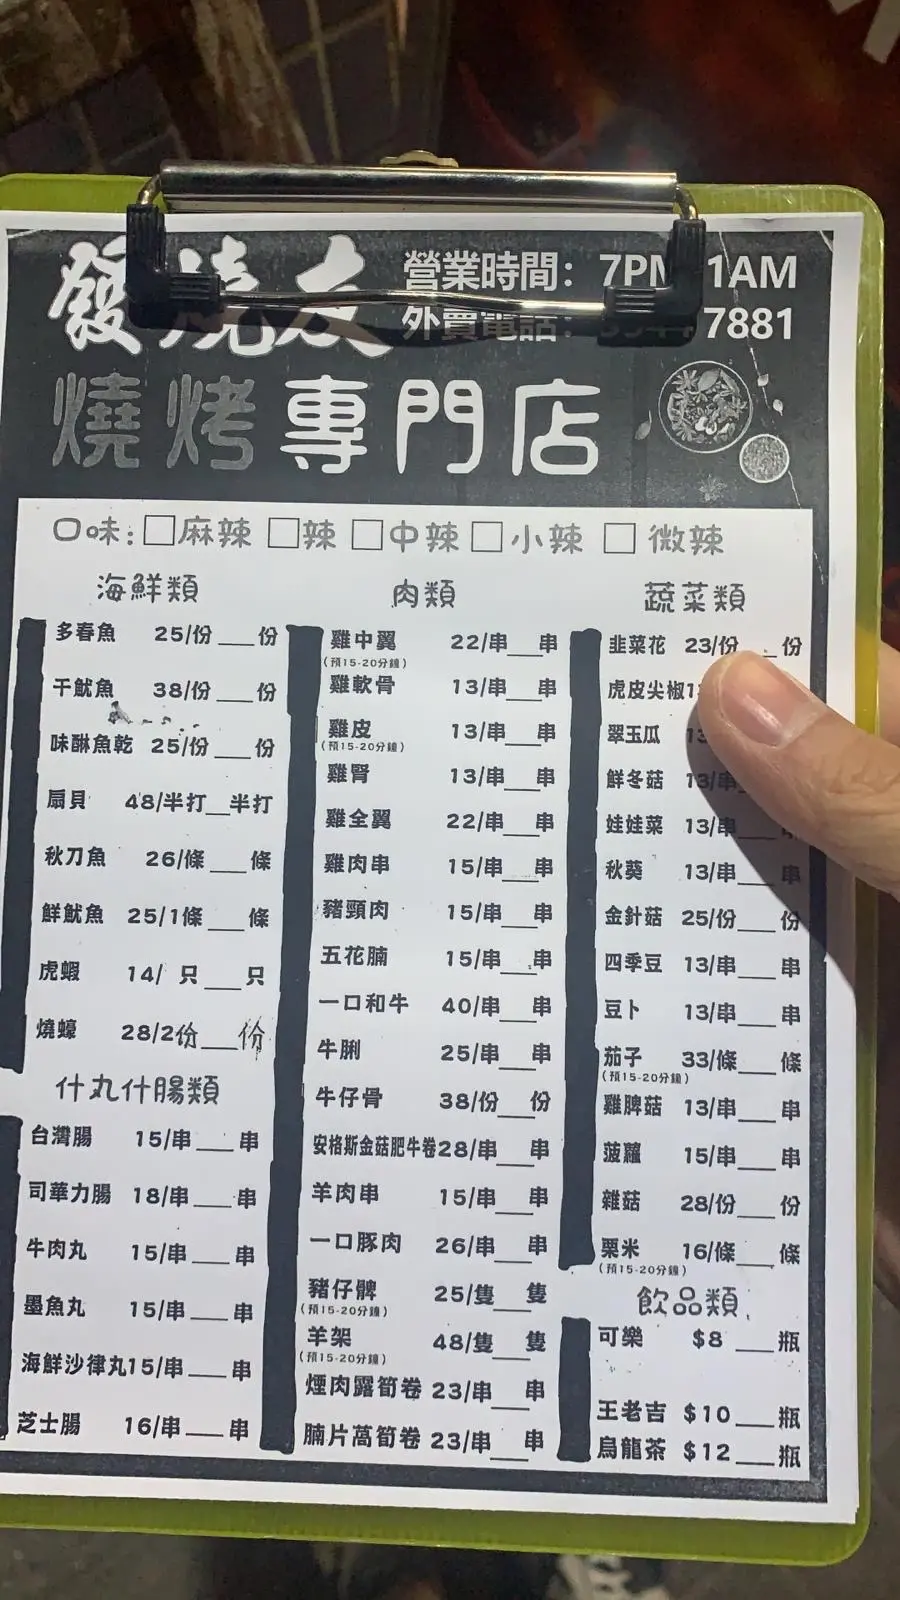 發燒友
營業時間：7PM 1AM
外賣電話： 7881
燒烤專門店
口味：□麻辣 □辣 □中辣 □小辣 □ 微辣
海鮮類
多春魚 25/份___份
干魷魚 38/份___份
味醂魚乾 25/份___份
扇貝 48/半打__半打
秋刀魚 26/條___條
鮮魷魚 25/1條___條
虎蝦 14/ 只___只
燒蠔 28/2份___份
什丸什腸類
台灣腸 15/串___串
司華力腸 18/串___串
牛肉丸 15/串___串
墨魚丸 15/串___串
海鮮沙律丸15/串___串
芝士腸 16/串___串
肉類
雞中翼 22/串___串
(預15-20分鐘)
雞軟骨 13/串___串
雞皮 13/串___串
(預15-20分鐘)
雞腎 13/串___串
雞全翼 22/串___串
雞肉串 15/串___串
豬頸肉 15/串___串
五花腩 15/串___串
一口和牛 40/串___串
牛脷 25/串___串
牛仔骨 38/份___份
安格斯金菇肥牛卷28/串___串
羊肉串 15/串___串
一口豚肉 26/串___串
豬仔髀 25/隻___隻
(預15-20分鐘)
羊架 48/隻___隻
(預15-20分鐘)
煙肉露筍卷 23/串___串
腩片萵筍卷 23/串___串
蔬菜類
韭菜花 23/份___份
虎皮尖椒1
翠玉瓜 13
鮮冬菇 13/串
娃娃菜 13/串___串
秋葵 13/串___串
金針菇 25/份___份
四季豆 13/串___串
豆卜 13/串___串
茄子 33/條___條
(預15-20分鐘)
雞脾菇 13/串___串
菠蘿 15/串___串
雜菇 28/份___份
粟米 16/條___條
(預15-20分鐘)
飲品類
可樂 $8 ___瓶
王老吉 $10___瓶
烏龍茶 $12___瓶